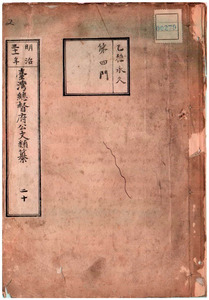 明治
三十一年
臺灣總督府公文類纂
二十
乙種永久
第四門